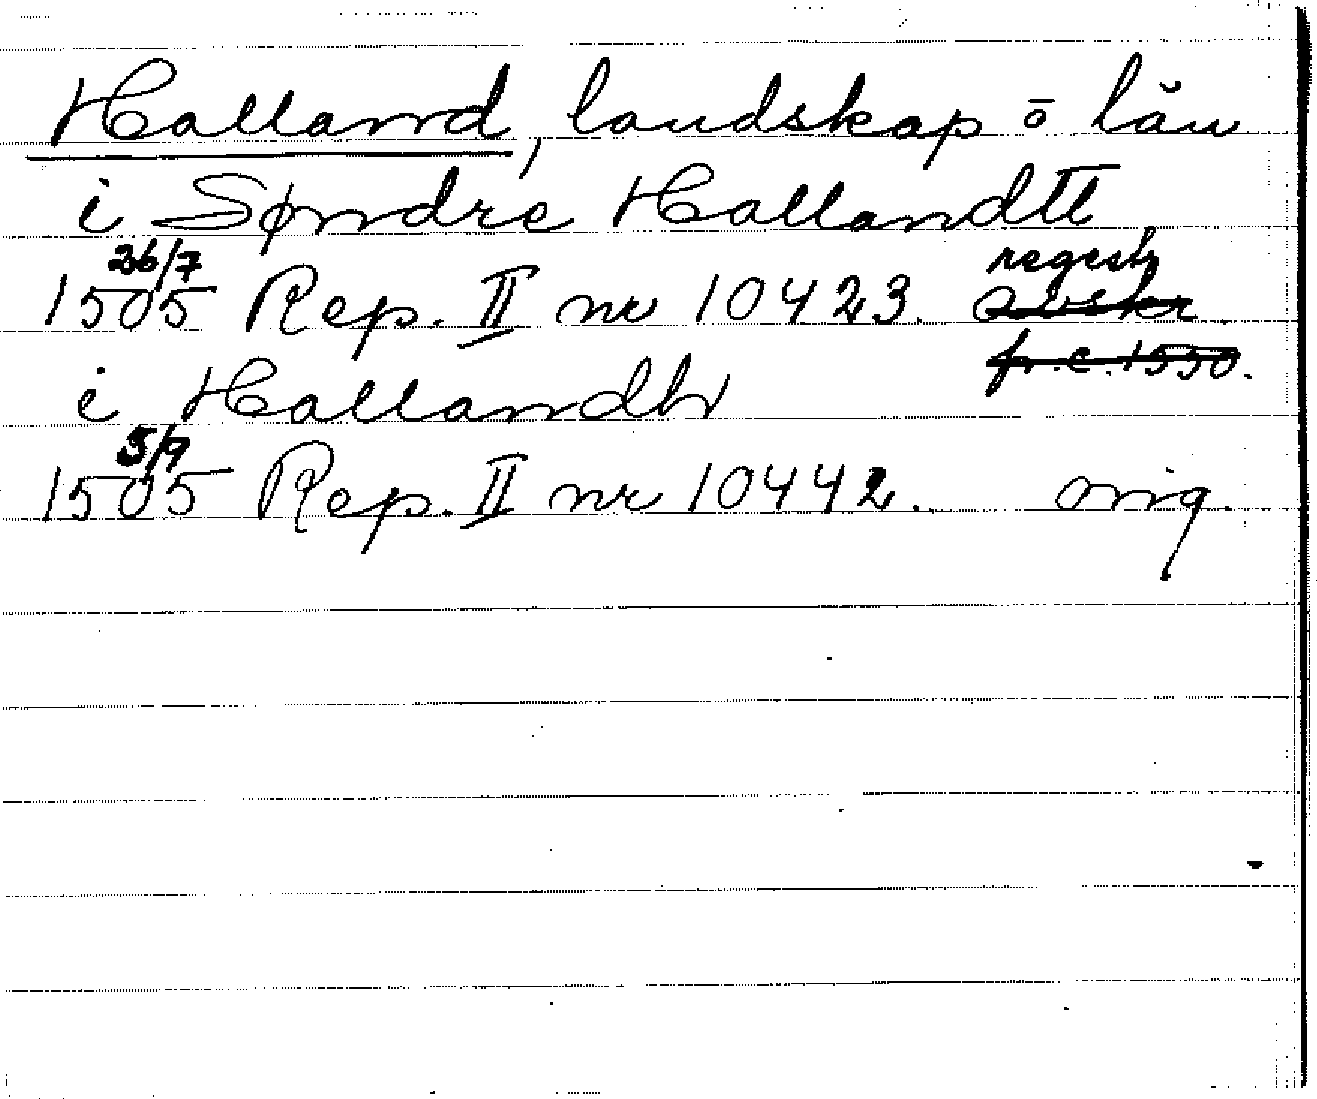 Halland, landskap o län
i Søndre Hallandtt
26/7 regest
1505 Rep. II nr 10423. avskr
fr. c. 1550.
i Hallandh
5/9
1505 Rep. II nr 10442. orig.